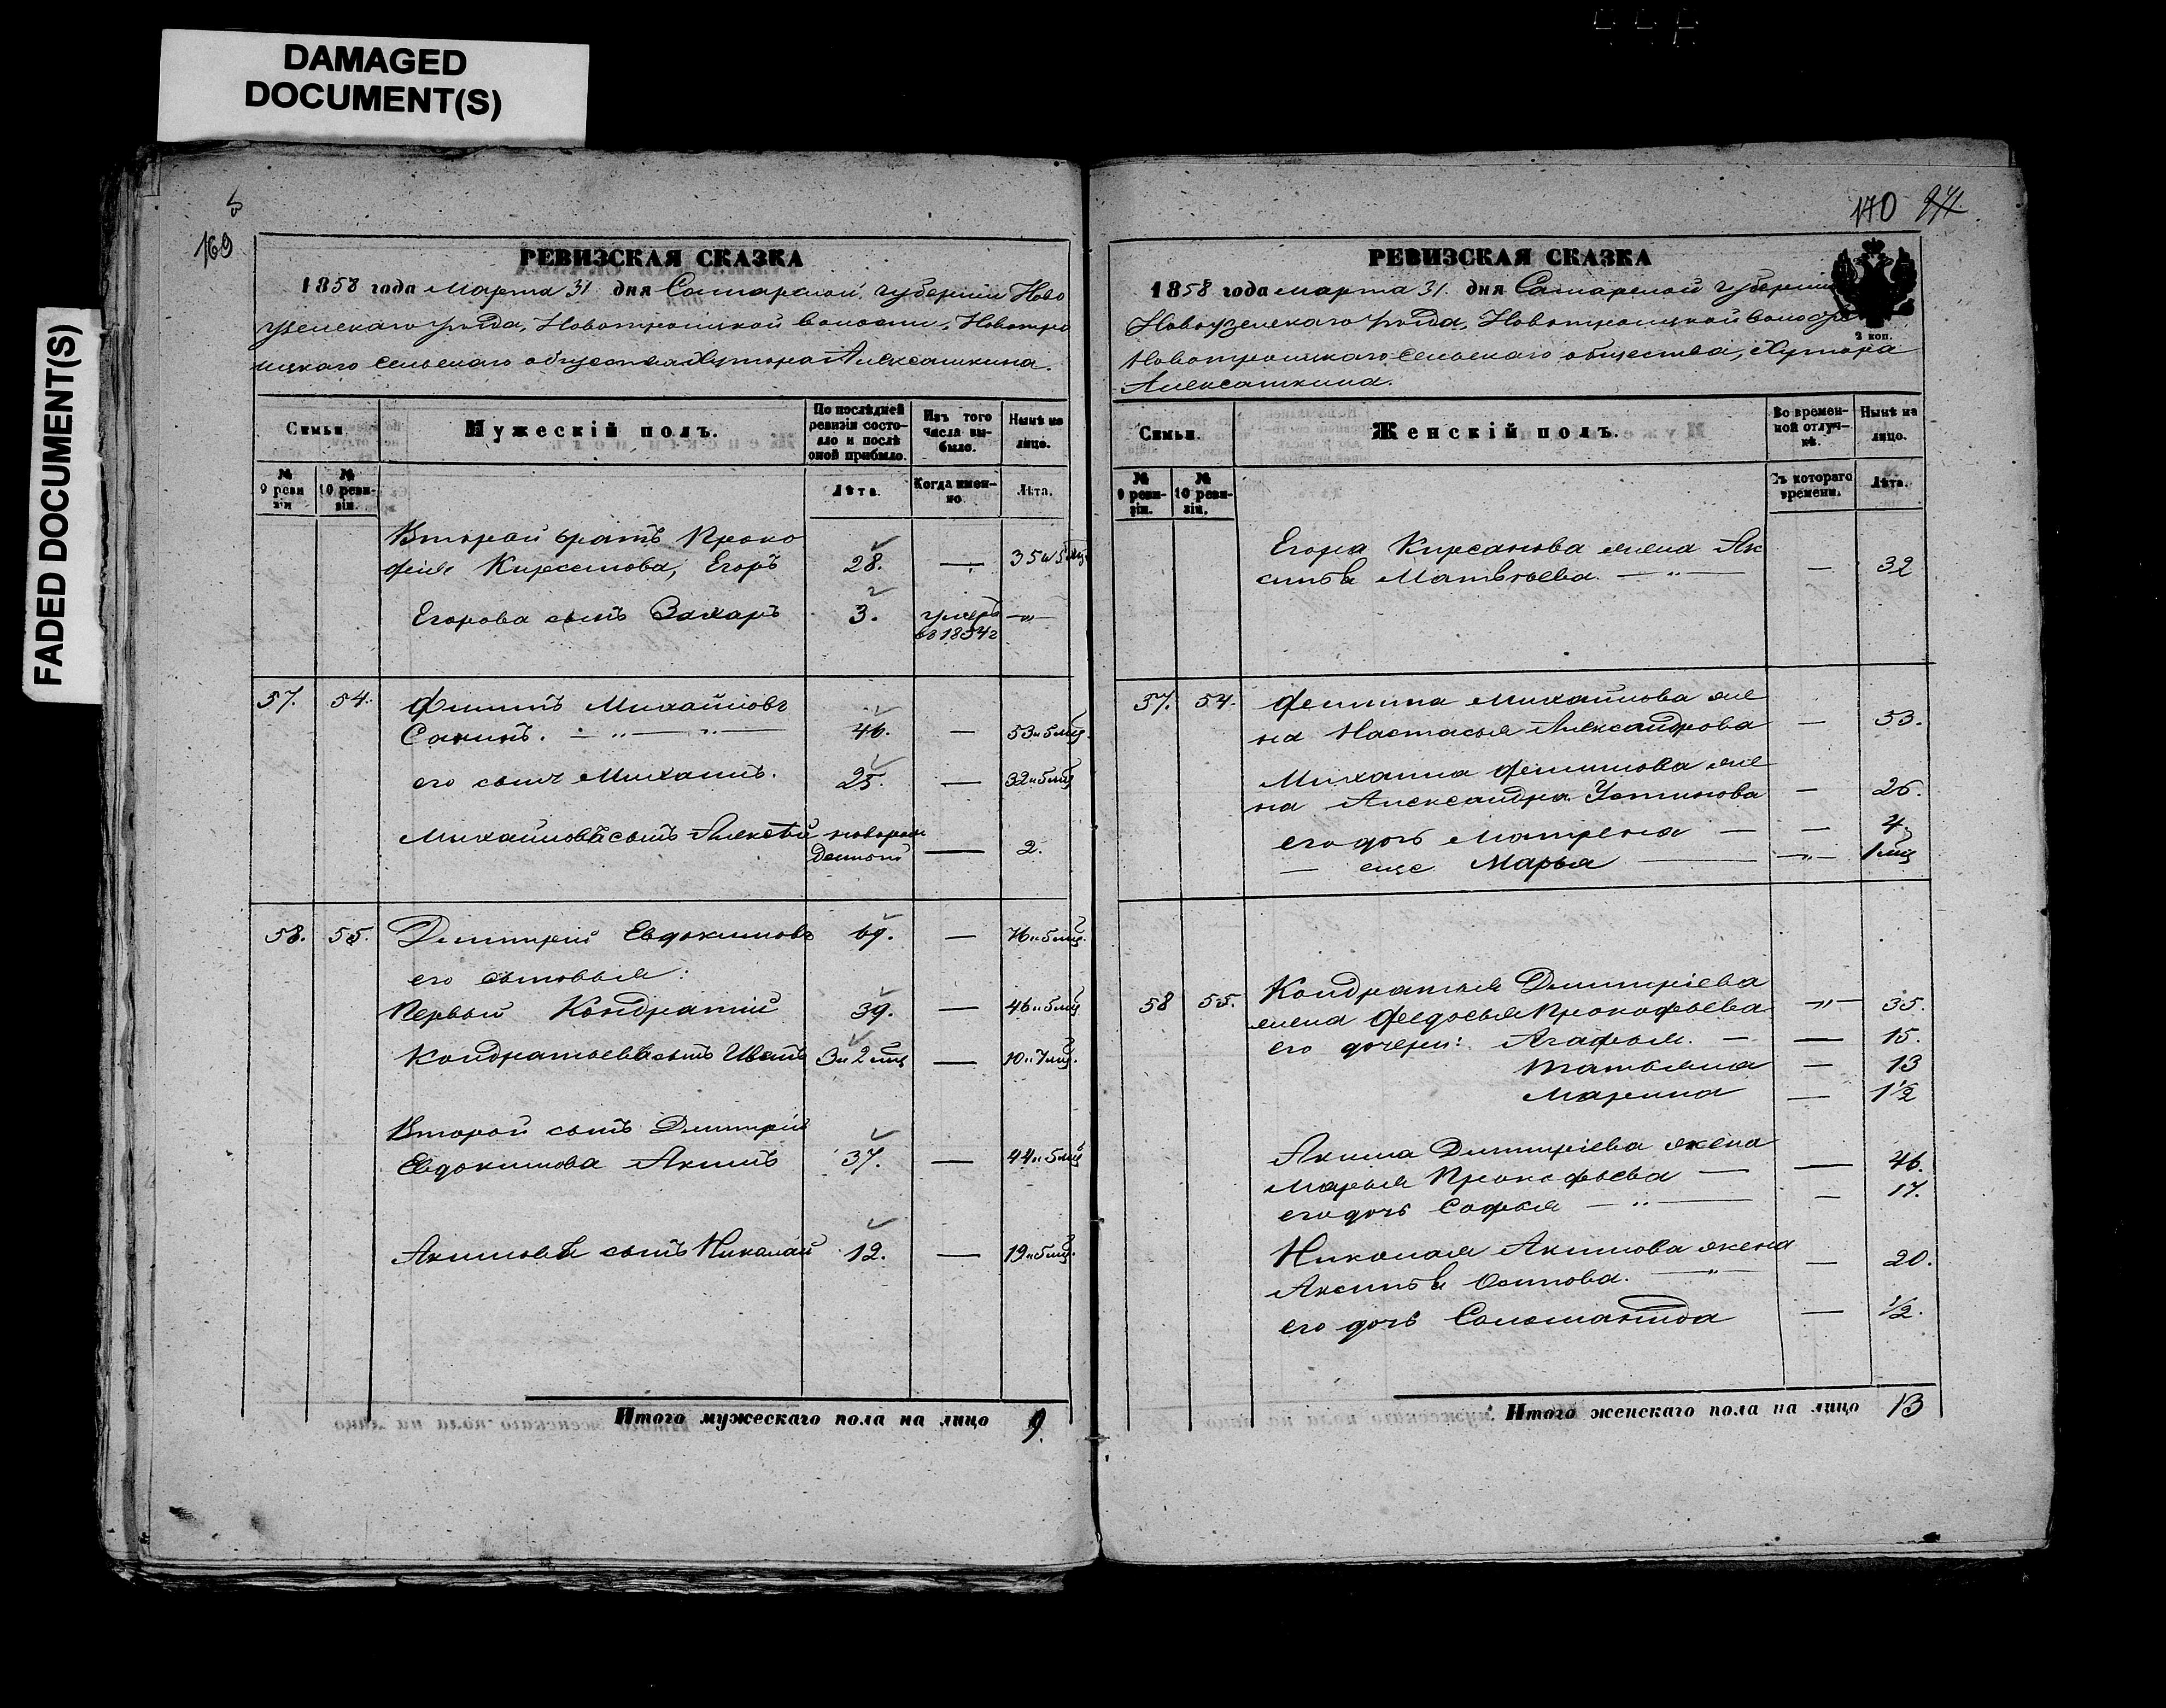 DAMAGED
DOCUMENT(S)
FADED DOCUMENT(S)
169
РЕВИЗСКАЯ СКАЗКА
1858 года Марта 31 дня Самарской губернии Ново
узенскаго уѣзда, Новотроицкой волости, Новотро
ицкаго сельскаго общества Хутора Алексашкина.
Семьи.
Мужескій полъ.
По послѣдней ревизіи состояло и послѣ оной прибыло.
Изъ того числа выбыло.
Нынѣ на лицо.
№ 9 ревизіи
№ 10 ревизіи.
Лѣта.
Когда именно.
Лѣта.
Второй братъ Проко
фія Кирсанова, Егоръ 28. — 35 и 5 мц
Егорова сынъ Захаръ 3. умеръ —„—
въ 1854 г
57. 54. Филипъ Михайловъ
Сакинъ. — „ — „ — 46. — 53 и 5 мц.
его сынъ Михаилъ. 25. — 32 и 5 мц
Михайловъ сынъ Алексѣй новорож
денный — 2.
58. 55. Димитрій Евдокимовъ 69. — 76 и 5 мц.
его сыновья:
Первый Кондратій 39. — 46 и 5 мц
Кондратьевъ сынъ Иванъ 3 и 2 мц — 10 и 7 мц.
Второй сынъ Дмитрія
Евдокимова Акимъ 37. — 44 и 5 мц
Акимовъ сынъ Николай 12. — 19 и 5 мц.
Итого мужескаго пола на лицо 9.
170
РЕВИЗСКАЯ СКАЗКА
1858 года марта 31. дня Самарской губерніи
Новоузенскаго уѣзда, Новотроицкой волости
2 коп.
Новотроицкаго сельскаго общества, Хутора
Алексашкина.
Семьи.
Женскій полъ.
Во временной отлучкѣ.
Нынѣ на лицо.
№ 9 ревизіи.
№ 10 ревизіи.
Съ котораго времени.
Лѣта.
Егора Кирсанова жена Ак
синья Матвѣева. — „ — — 32
57. 54. Филипа Михайлова же
на Настасья Александрова — 53.
Михаила Филипова же
на Александра Устинова — 26.
его дочь Матрена — — 4.
— еще Марья — —„— 1 мц
58 55. Кондратья Димитріева
жена Федосья Прокофьева —„— 35.
его дочери: Агафья. — — 15.
Татьяна — 13
Марина — 1½
Акима Димитріева жена
Марья Прокофьева — — 46.
его дочь Софья — „ — — 17.
Николая Акимова жена
Аксинья Осипова. —„— — 20.
его дочь Соломанида — ½.
Итого женскаго пола на лицо 13